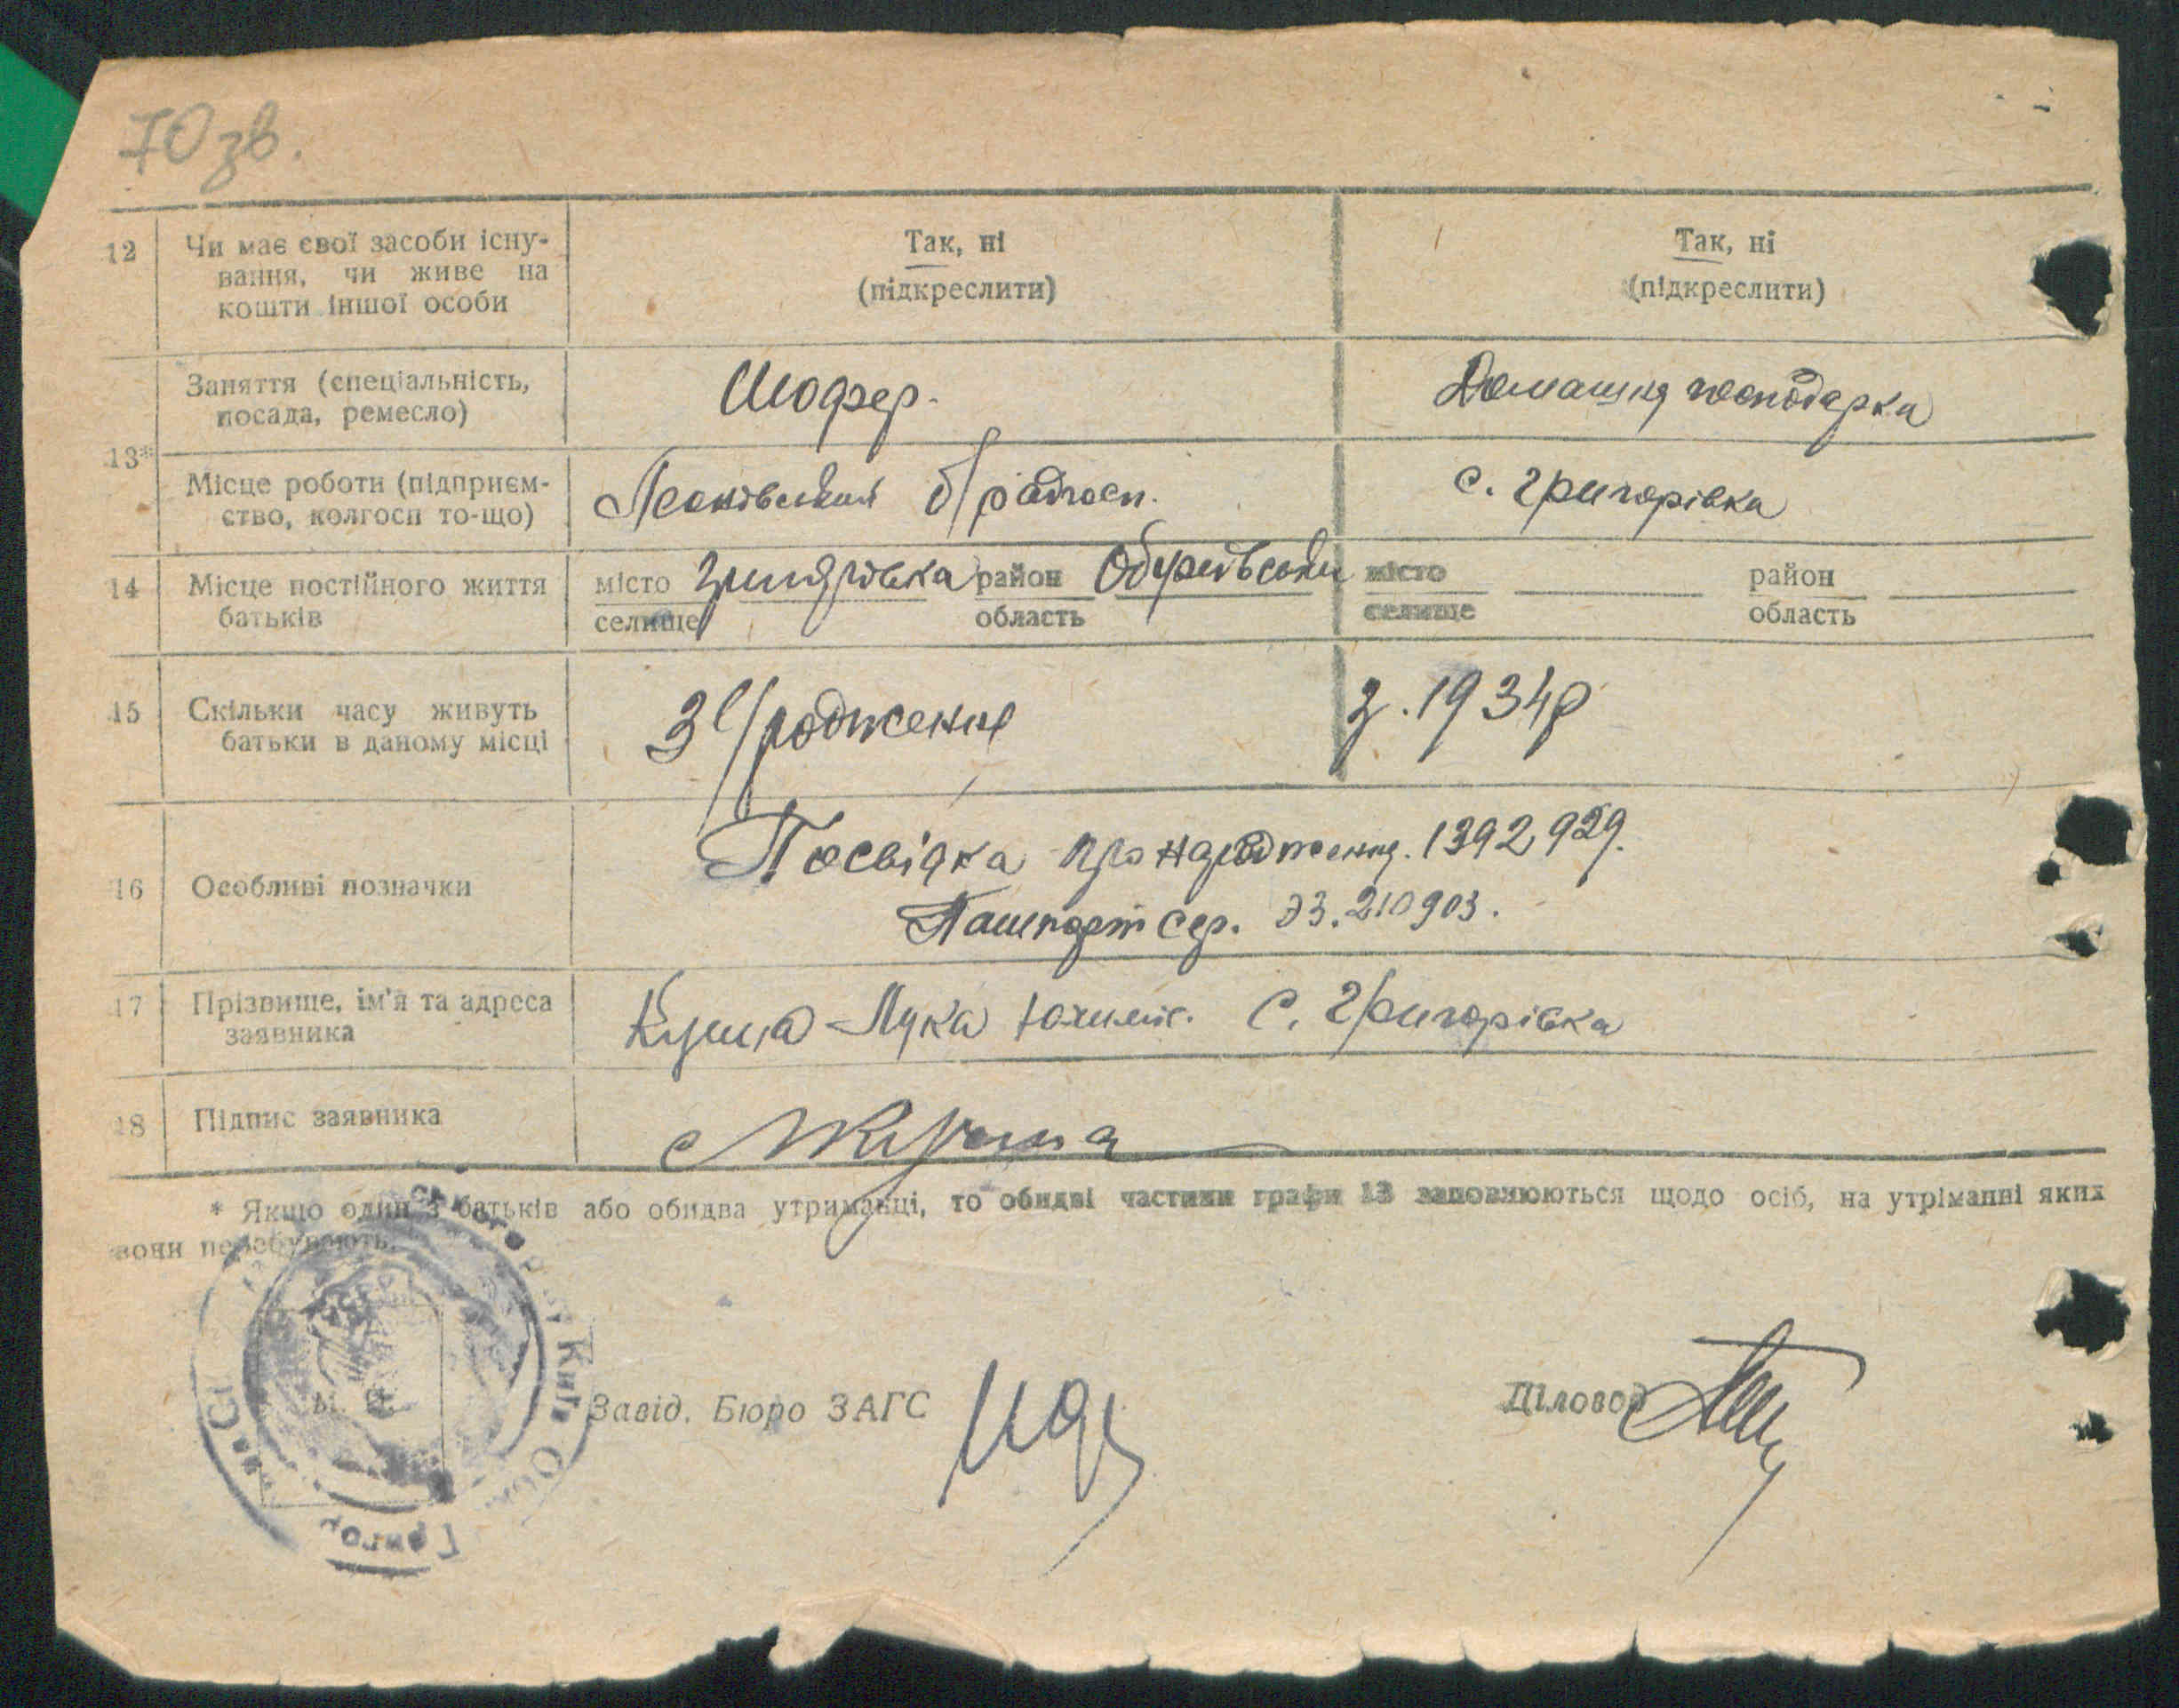 70 зв.
12 Чи має свої засоби існу- Так, ні Так, ні
вання, чи живе на (підкреслити) (підкреслити)
кошти іншої особи
Заняття (спеціальність, Шофер. Домашня господарка
посада, ремесло)
13*
Місце роботи (підприєм- б/радгосп. с. Григорівка
ство, колгосп то-що)
14 Місце постійного життя місто район Обухівськи місто район
батьків селище область селище область
15 Скільки часу живуть З 1/родження з. 1934р
батьки в даному місці
16 Особливі позначки Посвідка про народження. 1392929.
Пашпорт сер. ЭЗ. 210903.
17 Прізвище, ім'я та адреса Куша Лука Юхимів. С. Григорівка
заявника
18 Підпис заявника
* Якщо один з батьків або обидва утриманці, то обидві частини графи 13 заповнюються щодо осіб, на утріманні яких
вони перебувають.
М. П.
Завід. Бюро ЗАГС Діловод